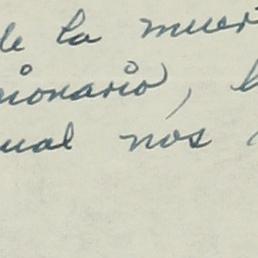 de la muer
cionario, l
ual nos